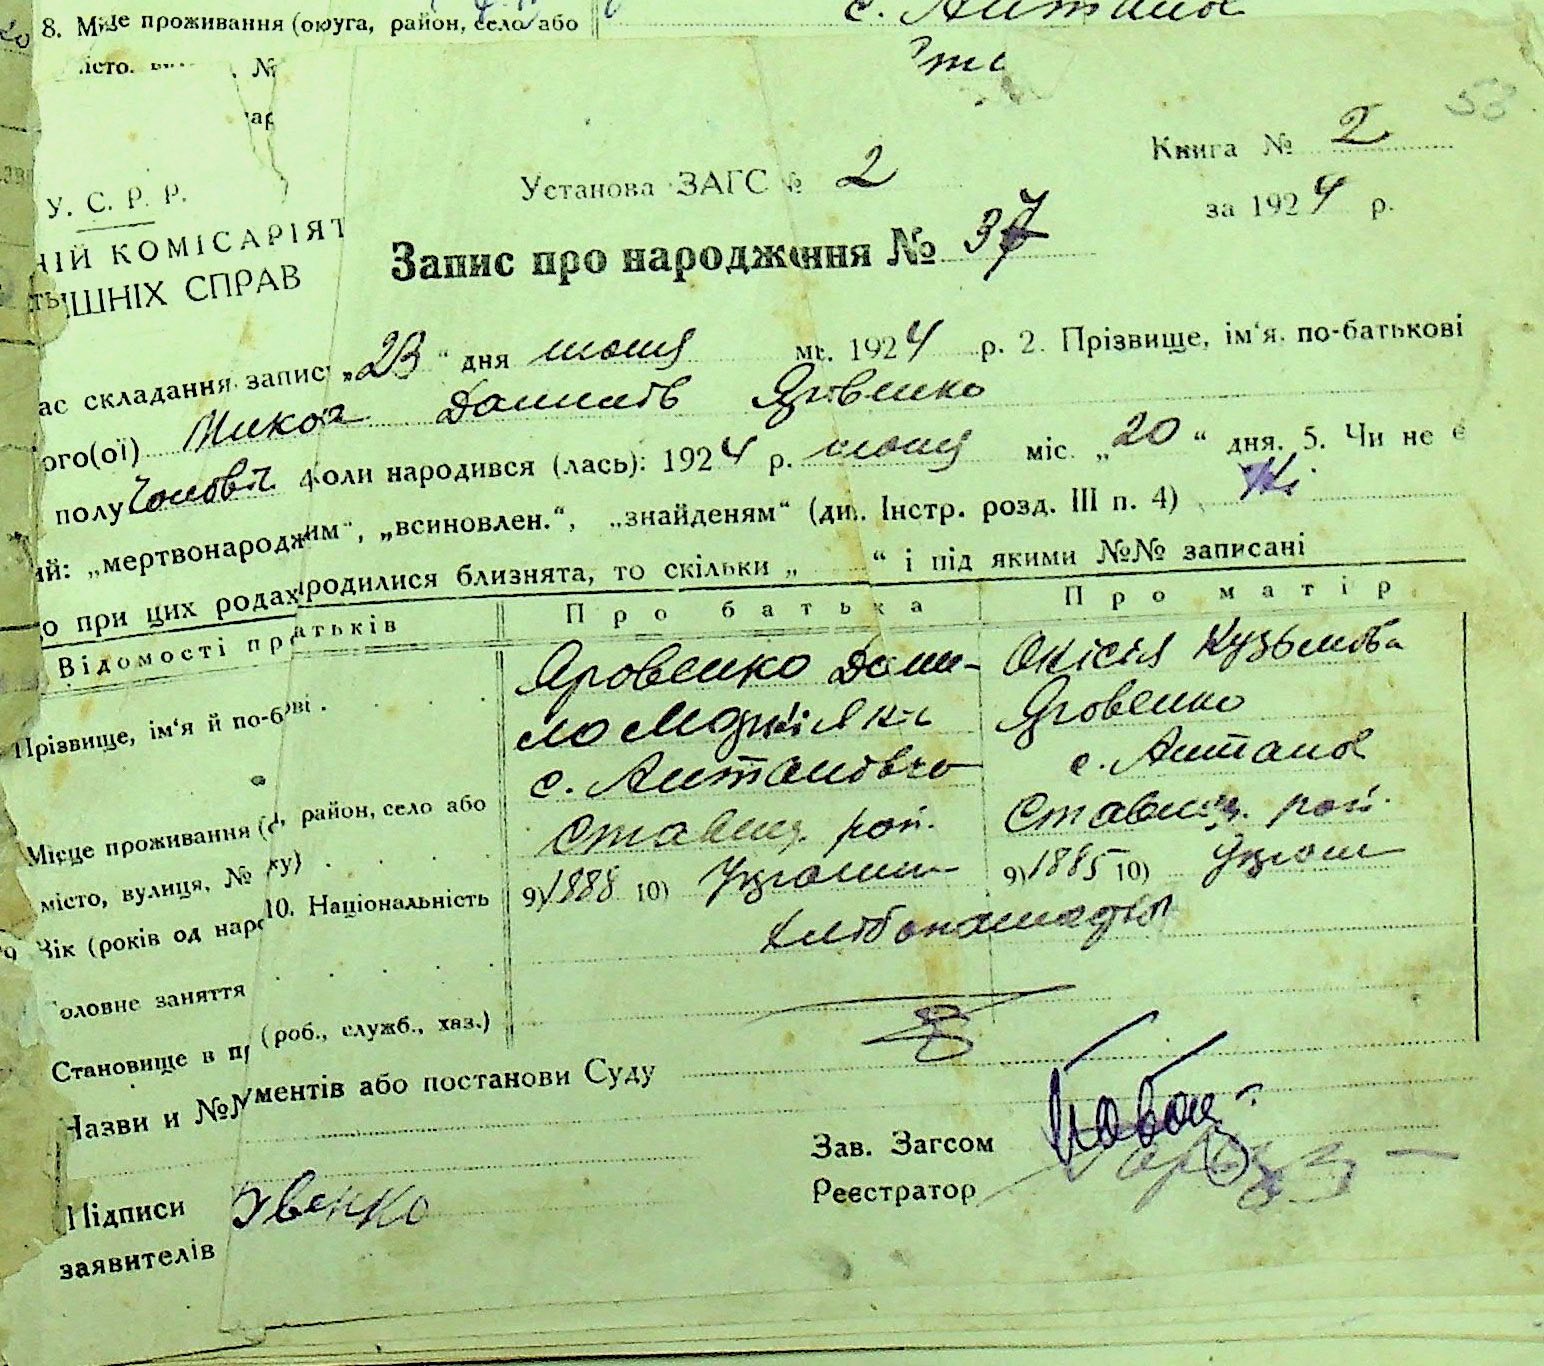 8. Місце проживання (округа, район, село або
с. Антанов
місто. №
58
У. С. Р. Р.
Установа ЗАГС № 2
Книга № 2
НІЙ КОМІСАРІЯТ
за 1924 р.
ІШНІХ СПРАВ
Запис про народження № 37
ас складання запис „23“ дня июня мс. 1924 р. 2. Прізвище, ім‘я, по-батькові
ого(ої) Никола Данилів Яровенко
полу Чоловіч. 4 Коли народився (лась): 1924 р. июня міс. „20“ дня. 5. Чи не є
ий: „мертвонароджим“, „всиновлен.“, „знайденям“ (див. Інстр. розд. III п. 4) Ні
о при цих родах родилися близнята, то скільки „ “ і під якими №№ записані
Відомості пр атьків
Про батька
Про матір
Прізвище, ім‘я й по-б ові
Яровенко Дани-
ло
Кузьмова
Яровенко
Місце проживання ( , район, село або
місто, вулиця, № ку)
с. Антанівка
Ставищ. рай.
с. Антанов
Ставищ. рай.
9 Вік (років од наро 10. Національність
9) 1888 10) Українн
9) 1885 10) Україн
оловне заняття
хліборобство
Становище в п (роб., служб., хаз.)
Назви и №№ ументів або постанови Суду
Зав. Загсом
Реєстратор
Підписи
заявителів
овенко